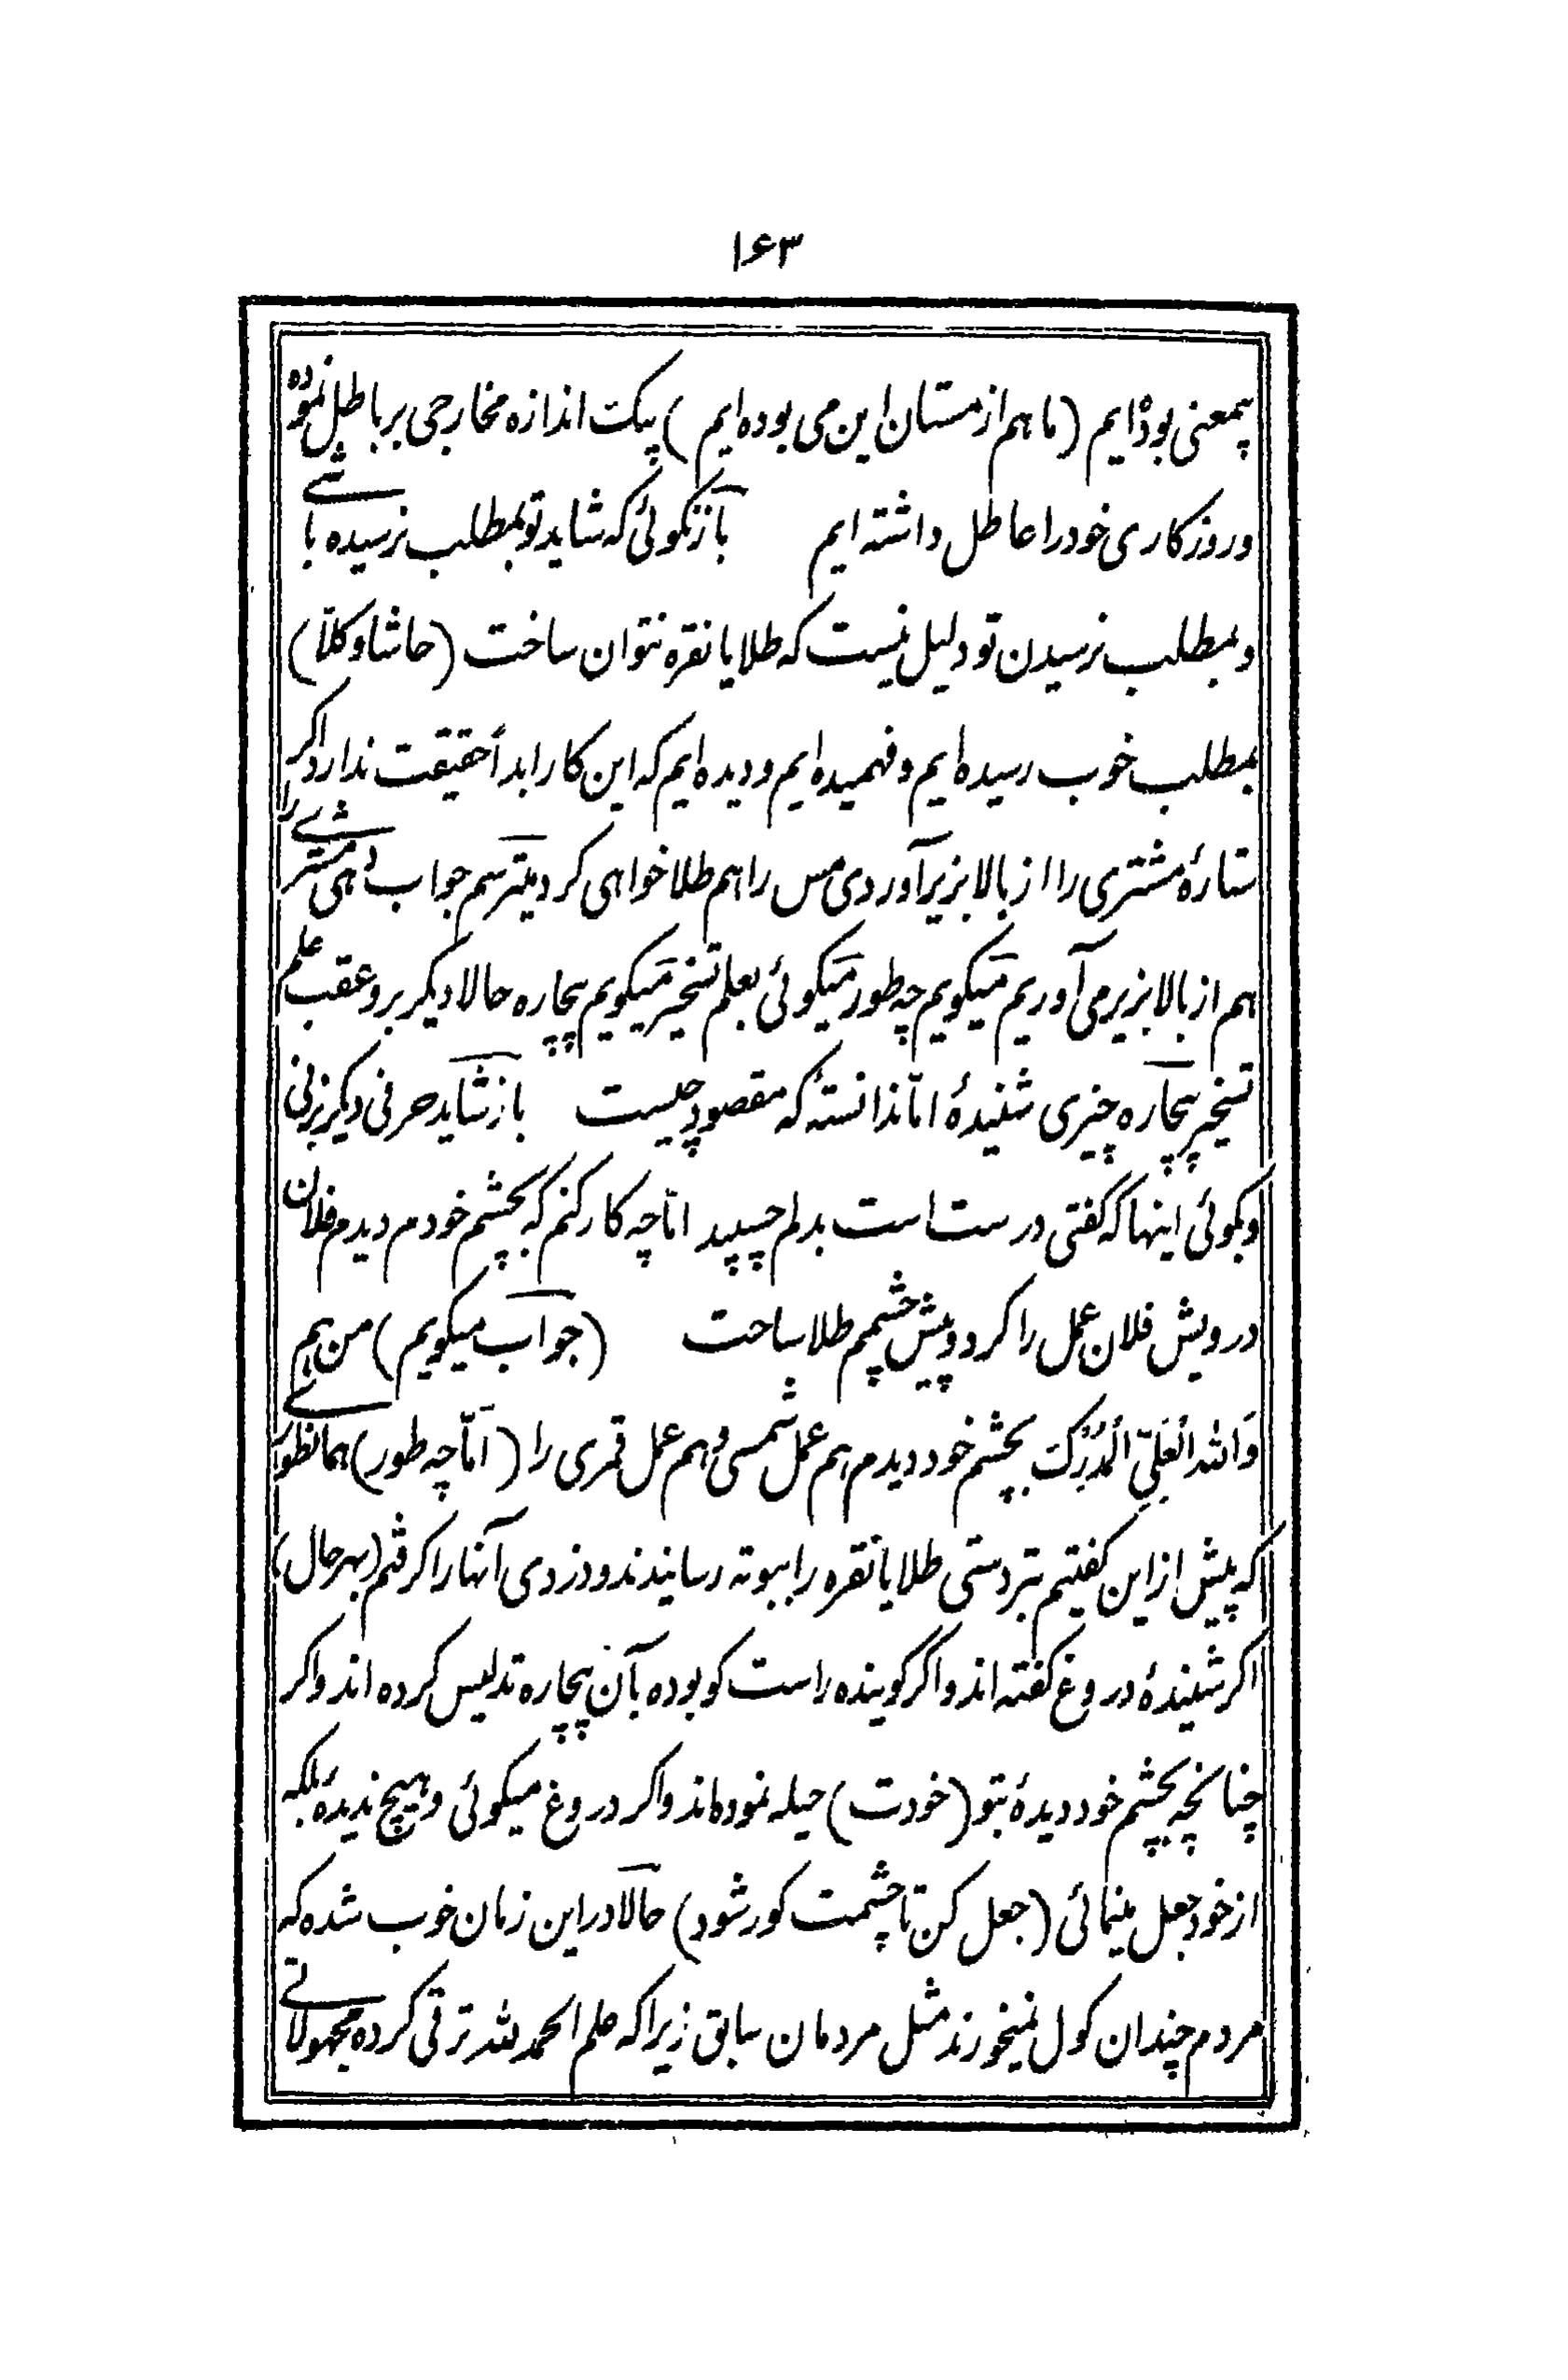 ۱۶۳
بیمعنی بوده‌ایم (ما هم از مستان این می بوده‌ایم) یک اندازه مخارجی بر باطل نموده
و روزکاری خود را عاطل داشته ایم باز نکوئی که شاید تو بمطلب نرسیده باشی
و بمطلب نرسیدن تو دلیل نیست که طلا یا نقره نتوان ساخت (حاشا و کلّا)
بمطلب خوب رسیده‌ایم و فهمیده ایم و دیده ایم که این کار ابداً حقیقت ندارد اکر
ستارهٔ مشتری را از بالا بزیر آوردی مس را هم طلا خواهی کرد میترسم جواب دهی مشتری را
هم از بالا بزیر می آوریم میکویم چه طور میکوئی بعلم تسخیر میکویم بیچاره حالا دیکر برو عقب علم
تسخیر بیچاره چیزی شنیدهٔ امّا ندانستهٔ که مقصود چیست باز شاید حرفی دیکر بزنی
و بکوئی اینها که گفتی درست است بدلم چسپید امّا چه کار کنم که بچشم خودم دیدم فلان
درویش فلان عمل را کرد و پیش چشمم طلا ساخت (جواب میکویم) من هم
وَاللّه العَلِیّ المُدرِک بچشم خود دیدم هم عمل شمسی و هم عمل قمری را (امّا چه طور) همانطوری
که پیش از این کفتیم بتردستی طلا یا نقره را ببوته رسانیدند و دزدی آنها را کرفتم (بهر حال)
اکر شنیدهٔ دروغ کفته اند و اگر کوینده راست کو بوده بآن بیچاره تدلیس کرده اند و اکر
چنانچه بچشم خود دیدهٔ بتو (خودت) حیله نموده‌اند و اکر دروغ میکوئی و هیچ ندیدهٔ بلکه
از خود جعل مینمائی (جعل کن تا چشمت کور شود) حالا در این زمان خوب شده که
مردم چندان کول نمیخورند مثل مردمان سابق زیرا که علم الحمد لله ترقی کرده مجهولاتی